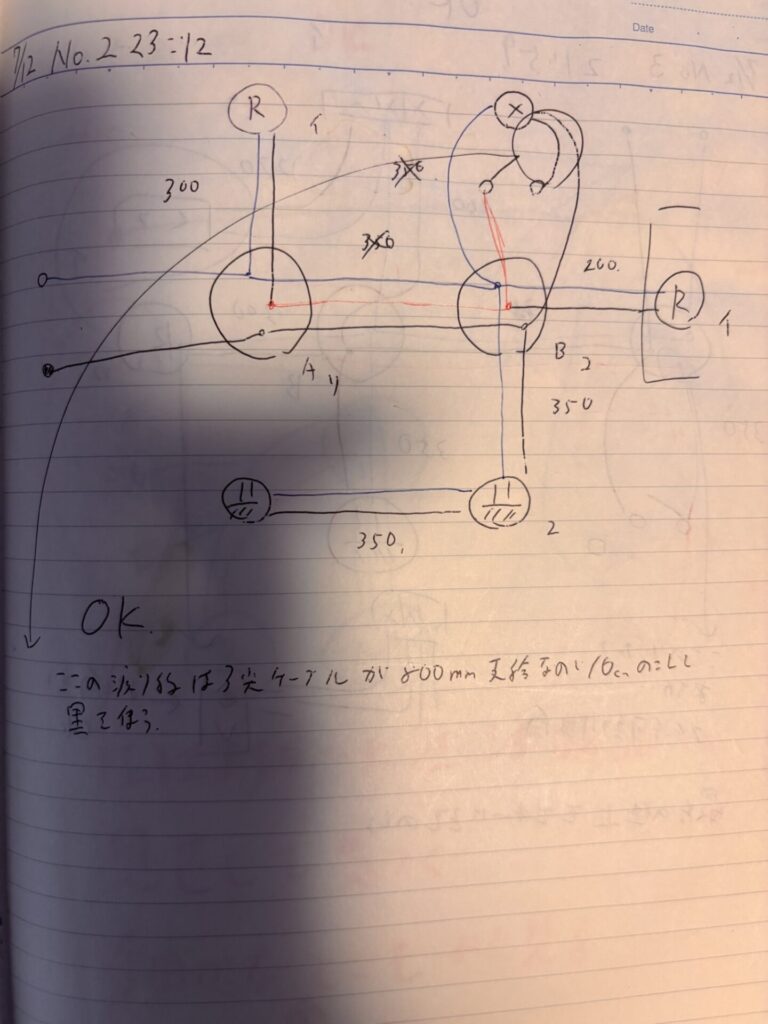 Date
7/12 No.2 23:12
R イ
300
350
350
200.
R イ
A リ
B 2
350
2
350.
OK.
ここの渡り線は3芯ケーブルが800mm支給なので10cmのこして
黒を使う.